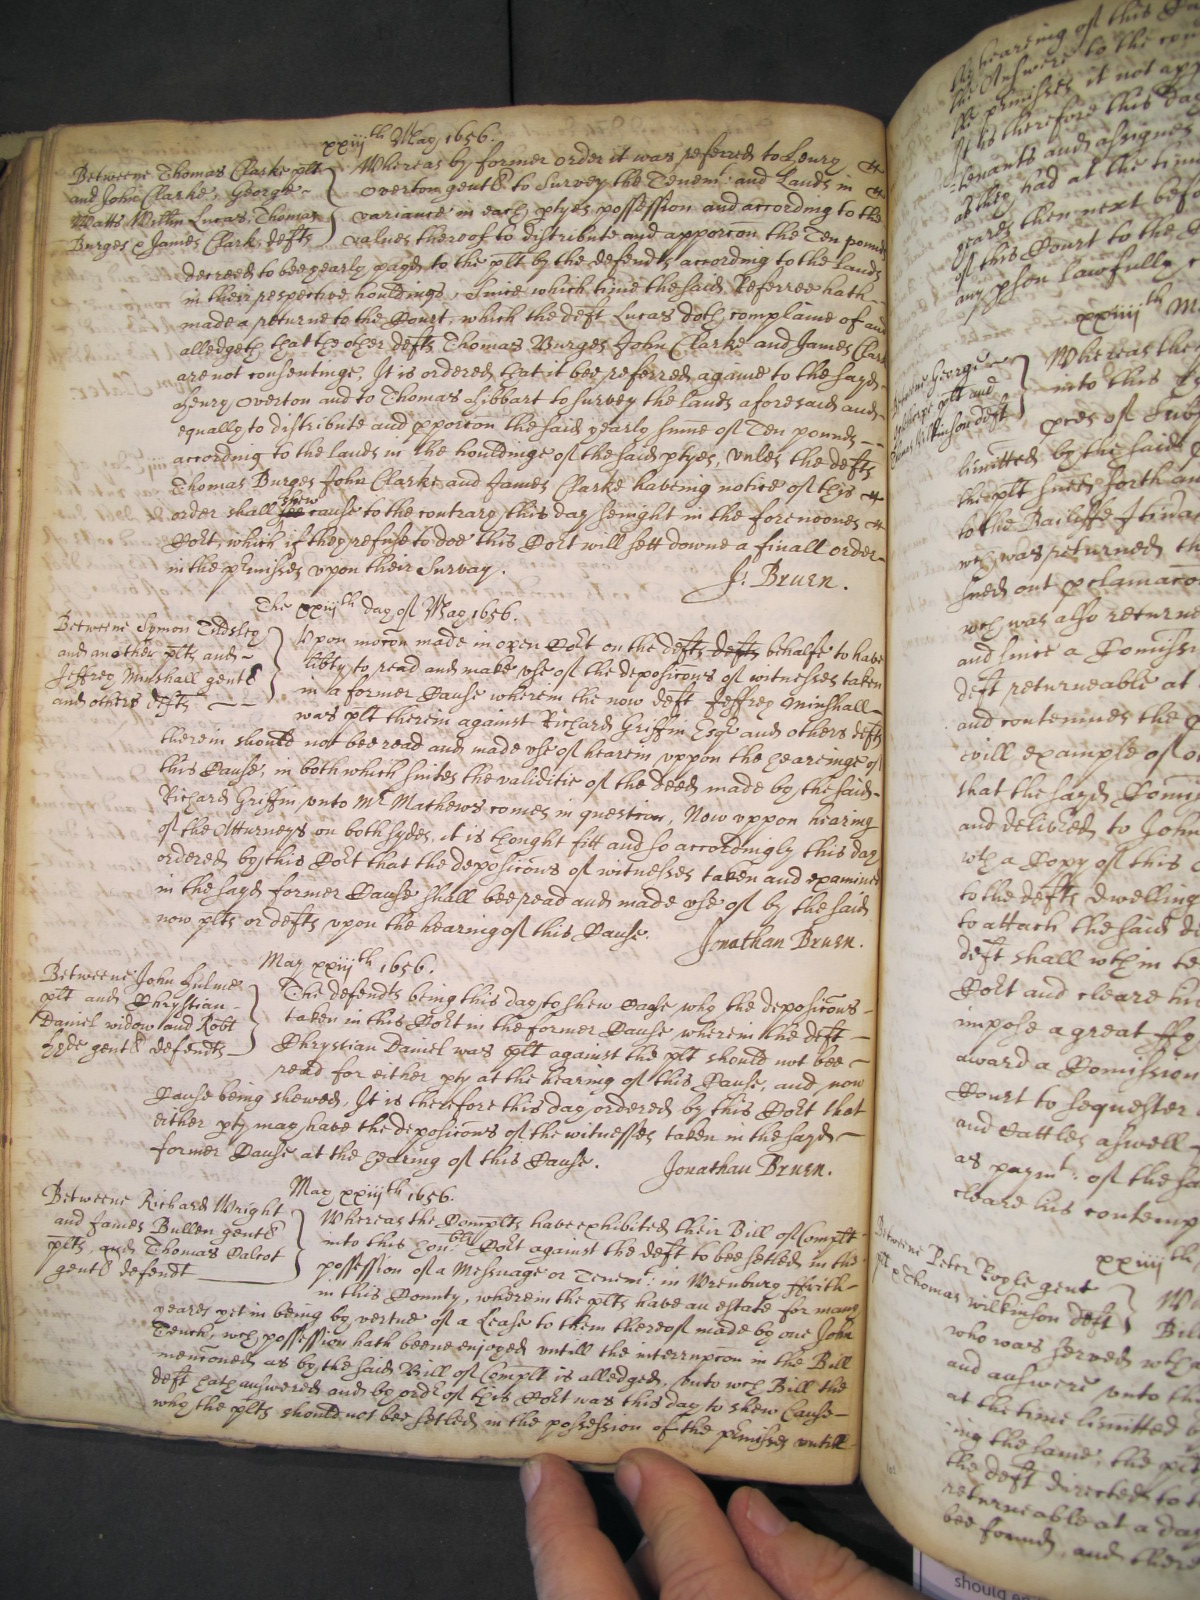 xxiijth May 1656.
Betweene Thomas Clarke plt
and John Clarke, George
Watts Willm Lucas, Thomas
Burges & James Clark defts
Whereas by former order it was referred to Henry
Overton gent to Survey the Tenemt and Lands in
variance in each ptyes possession and according to the
values thereof to distribute and apporcon the Ten pounds
decreed to bee yearly payd to the plt by the defendts according to the Lands
in their respective houldings, Since which time the said Referree hath
made a returne to the Court, which the deft Lucas doth complaine of and
alledgeth that the other defts Thomas Burges John Clarke and James Clark
are not consentinge, It is ordered that it bee referred againe to the sayd
Henry Overton and to Thomas Hibbart to survey the lands aforesaid and
equally to distribute and pporcon the said yearly sume of Ten pounds
according to the lands in the houldinge of the said ptyes, unles the defts
Thomas Burges John Clarke and James Clarke haveing notice of this
order shall shew cause to the contrary this day senight in the forenoone
Cort, which if they refuse to doe this Cort will sett downe a finall order
in the pmisses upon their Survay.
J: Bruen.
The xxiijth day of May 1656.
Betweene Symon Tildsley
and another plts and
Jeffrey Minshall gent
and others defts
Upon mocon made in open Cort on the defts defts behalfe to have
libty to read and make use of the deposicons of witnesses taken
in a former Cause wherein the now deft Jeffrey Minshall
was plt therein against Richard Griffin Esqr and others defts
therein should not bee read and made use of hearein uppon the heareinge of
this Cause, in both which suites the validitie of the deed made by the said
Richard Griffin unto Mr Mathews comes in question, Now uppon hearing
of the Atturneys on both sydes, it is thought fitt and so accordingly this day
ordered by this Cort that the deposicons of witnesses taken and examined
in the sayd former Cause shall bee read and made use of by the said
now plts or defts upon the hearing of this Cause.
Jonathan Bruen.
May xxiijth 1656.
Betweene John Hulme
plt and Chrystian
Daniel widow and Robt
Hyde gent defendts
The defendts being this day to shew Cause why the deposicons
taken in this Cort in the former Cause wherein the deft
Chrystian Daniel was plt against the plt should not bee
read for either pty at the hearing of this Cause, and now
Cause being shewed, It is therefore this day ordered by this Cort that
either pty may have the deposicons of the witnesses taken in the sayd
former Cause at the hearing of this Cause.
Jonathan Bruen.
May xxiijth 1656.
Betweene Richard Wright
and James Bullen gent
plts, and Thomas
gent defendt
Whereas the Complts have exhibited their Bill of Complt
into this honble Cort against the deft to bee setled in the
possession of a Messuage or Tenemt in Wrenbury ffrith
in this County, wherein the plts have an estate for many
yeares yet in being by vertue of a Lease to them thereof made by one John
Tench, wch possession hath beene enjoyed untill the interrupcon in the Bill
menconed, as by the said Bill of Complt is alledged, unto wch Bill the
deft hath answered and by ordr of this Cort was this day to shew Cause
why the plts should not bee setled in the possession of the pmisses untill
the hearing of this
the Answere to the
the premisses it not
It is therefore this day
tenants and assignes
as they had at the time
yeares then next
of this Court to the
any pson lawfully
xxiiijth
Betweene George
plt and
Wilkinson deft
Whereas the
into this
pces of
limitted by the said
the plt sued forth an
to the Bailiffe Itinerant
wch was returned th
sued out pclamacon
wch was also returned
and since a Comissi
deft returneable at
and contemnes the
evill example of
that the sayd Comi
and delivered to John
wth a Copy of this
to the defts dwelling
to attach the said
deft shall wthin
Cort and cleare his
impose a great
award a Comission
Court to sequester
and Cattles aswell
as paymt: of the
cleare his contemp
xxiiijth
Betweene Peter Royle gent
plt & Thomas Wilkinson deft
who was served with
and answere unto the
at the time limitted
ing the same, the
the deft directed to
returneable at a day
bee found, and there
should